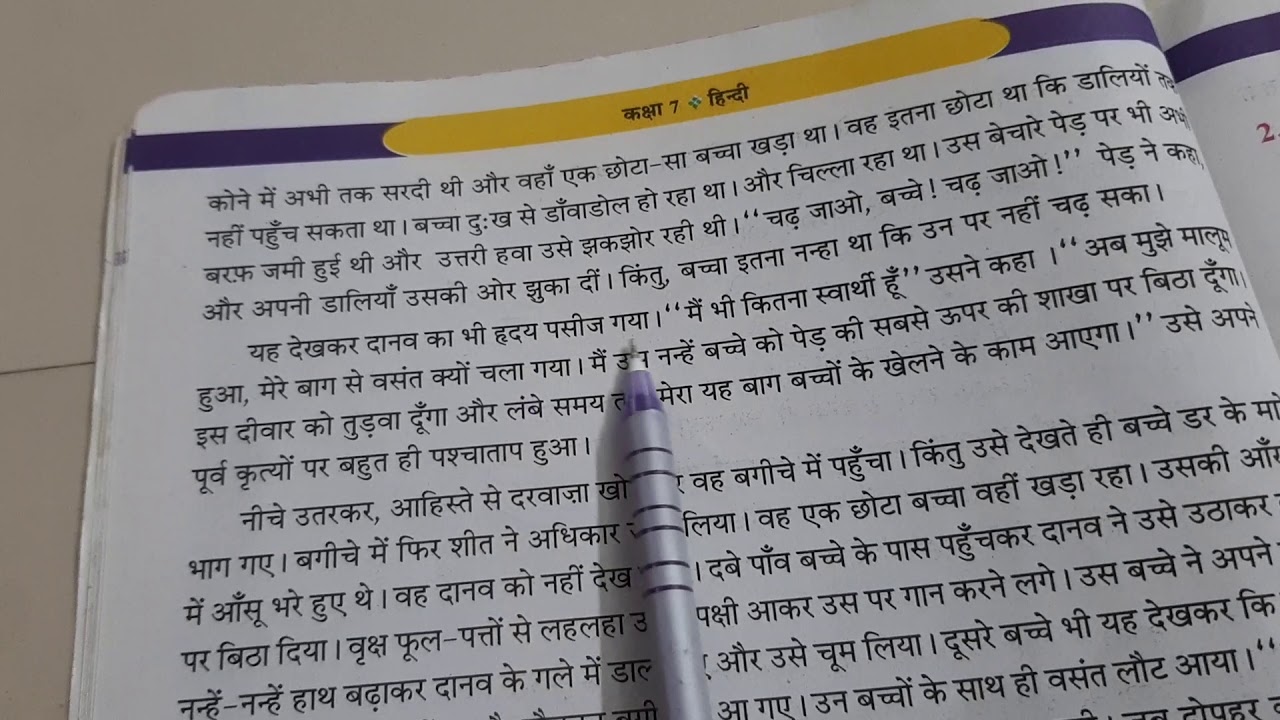 कक्षा 7 ❖ हिन्दी
कोने में अभी तक सरदी थी और वहाँ एक छोटा-सा बच्चा खड़ा था। वह इतना छोटा था कि डालियों
नहीं पहुँच सकता था। बच्चा दुःख से डाँवाडोल हो रहा था। और चिल्ला रहा था। उस बेचारे पेड़ पर भी
बरफ़ जमी हुई थी और उत्तरी हवा उसे झकझोर रही थी। “चढ़ जाओ, बच्चे! चढ़ जाओ!” पेड़ ने कहा,
और अपनी डालियाँ उसकी ओर झुका दीं। किंतु, बच्चा इतना नन्हा था कि उन पर नहीं चढ़ सका।
यह देखकर दानव का भी हृदय पसीज गया। “मैं भी कितना स्वार्थी हूँ” उसने कहा। “अब मुझे मालूम
हुआ, मेरे बाग से वसंत क्यों चला गया। मैं नन्हें बच्चे को पेड़ की सबसे ऊपर की शाखा पर बिठा दूँगा।
इस दीवार को तुड़वा दूँगा और लंबे समय मेरा यह बाग बच्चों के खेलने के काम आएगा।” उसे अपने
पूर्व कृत्यों पर बहुत ही पश्चाताप हुआ।
नीचे उतरकर, आहिस्ते से दरवाज़ा वह बगीचे में पहुँचा। किंतु उसे देखते ही बच्चे डर के
भाग गए। बगीचे में फिर शीत ने अधिकार लिया। वह एक छोटा बच्चा वहीं खड़ा रहा। उसकी
में आँसू भरे हुए थे। वह दानव को नहीं देख । दबे पाँव बच्चे के पास पहुँचकर दानव ने उसे उठाकर
पर बिठा दिया। वृक्ष फूल-पत्तों से लहलहा पक्षी आकर उस पर गान करने लगे। उस बच्चे ने अपने
नन्हें-नन्हें हाथ बढ़ाकर दानव के गले में और उसे चूम लिया। दूसरे बच्चे भी यह देखकर कि
आ गए। उन बच्चों के साथ ही वसंत लौट आया। “
दोपहर
2